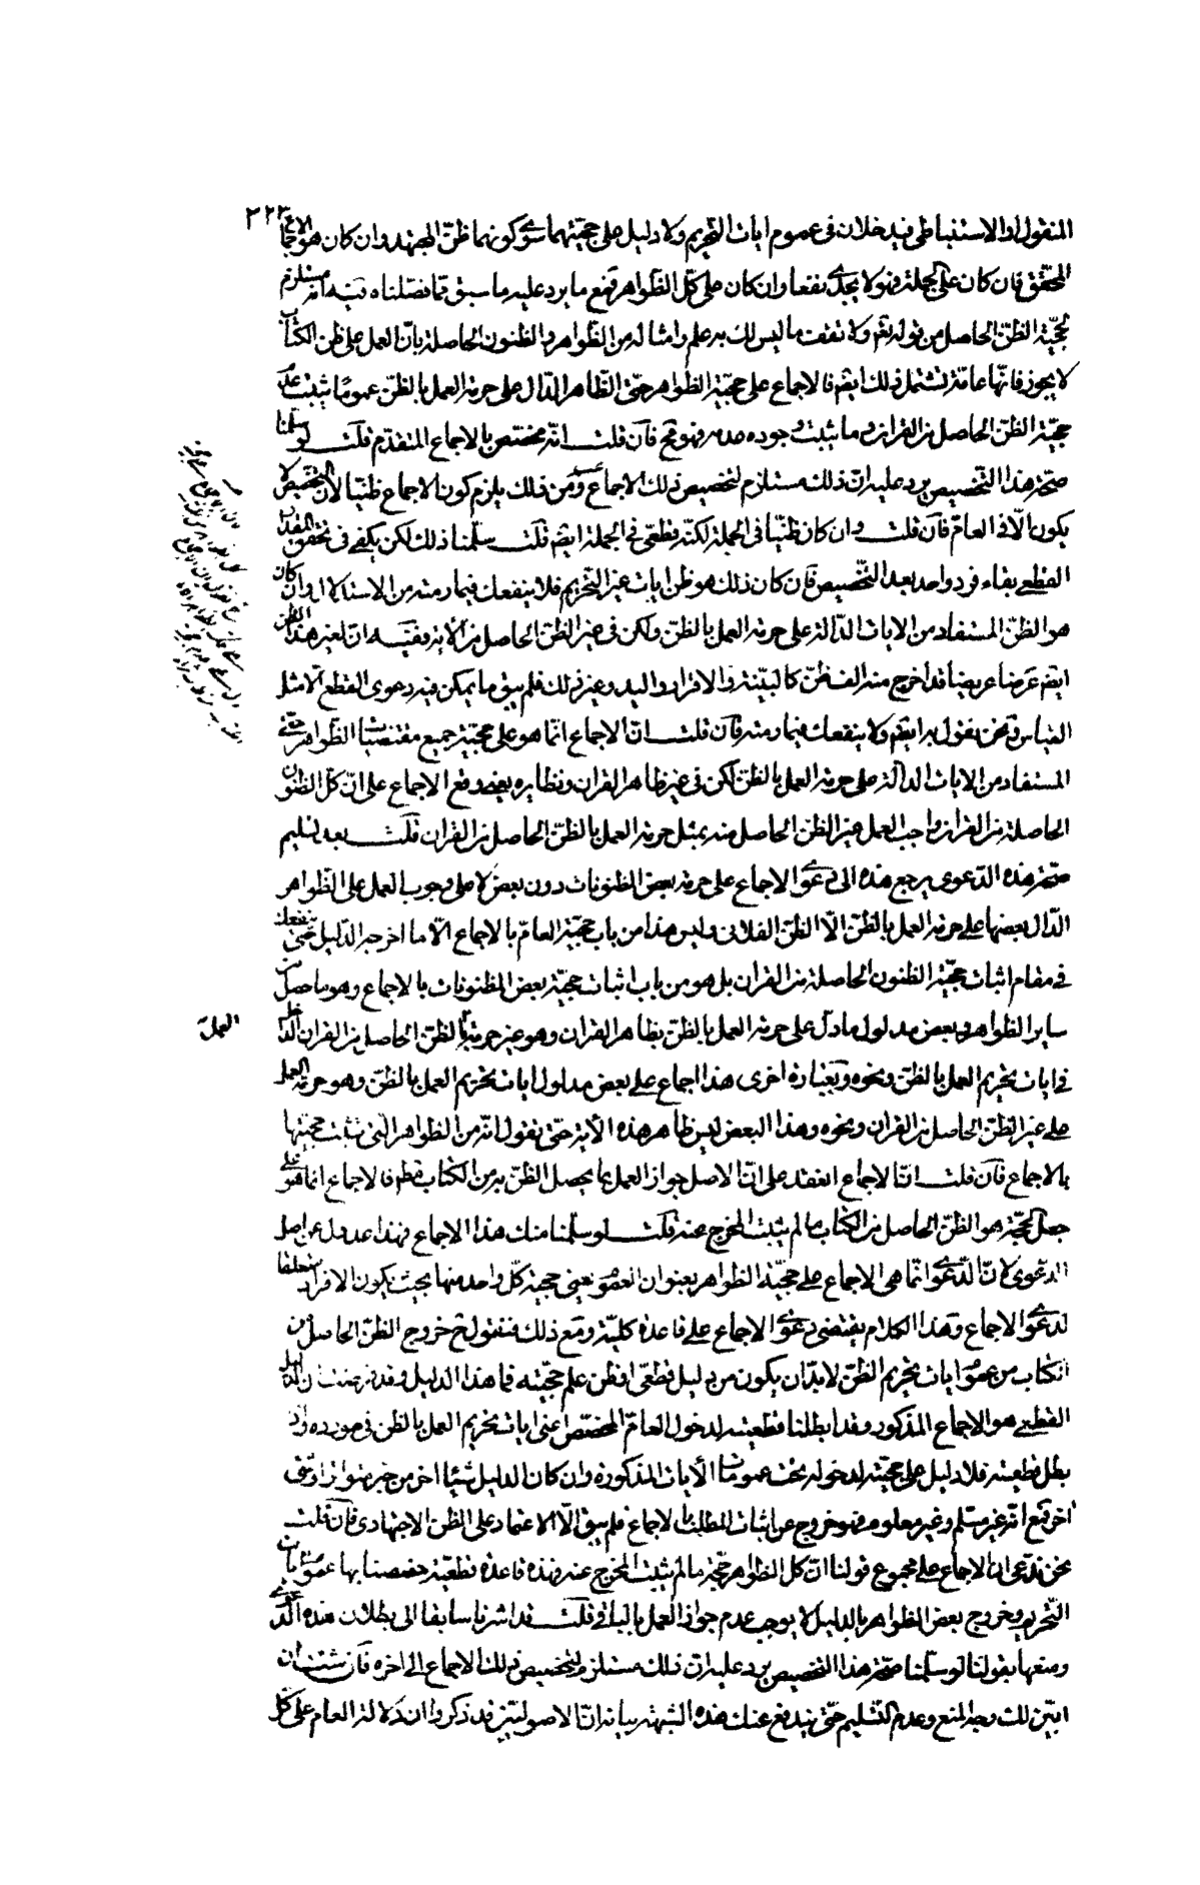 ٣٢٣
المنقول او الاستنباطى فيدخلان فى عموم ايات التحريم ولا دليل على حجيتهما سوى كونهما ظن المجتهد وان كان هو الاجماع
المحقق فان كان على الجملة فهو لا يجدى نفعا وان كان على كل الظواهر فمع ما يرد عليه ما سبق مما فصلناه فيه انه مستلزم
لحجية الظن الحاصل من قوله تعم ولا تقف ما ليس لك به علم وامثاله من الظواهر والظنون الحاصلة بان العمل على ظن الكتاب
لا يجوز فانها عامة تشتمل ذلك ايضم فالاجماع على حجية الظواهر حتى الظاهر الدال على حرمة العمل بالظن عموما يثبت على
حجية الظن الحاصل من القران وما يثبت وجوده عدمه فهو مح فان قلت انه مختص بالاجماع المتقدم قلت لو سلمنا
صحة هذا التخصيص يرد عليه ان ذلك مستلزم لتخصيص ذلك الاجماع ومن ذلك يلزم كون الاجماع ظنيا لان التخصيص لا
يكون الا فى العام فان قلت وان كان ظنيا فى الجملة لكنه قطعى فى الجملة ايضم قلت سلمنا ذلك لكن يكفى فى تحقق المقدار
القطعى بقاء فرد واحد بعد التخصيص فان كان ذلك هو ظن ايات غير التحريم فلا ينفعك فيما رمته من الاستدلال وان كان
هو الظن المستفاد من الايات الدالة على حرمة العمل بالظن ولكن فى غير الظن الحاصل من الاية وفيه ان لغير هذا الظن
ايضم عرضا عريضا قد اخرج منه الف ظن كالبينة والاقرار واليد وغير ذلك فلم يبق ما يمكن فيه دعوى القطع الا مثل
القياس ونحن نقول به ايضم ولا ينفعك فيما رمته فان قلت ان الاجماع انما هو على حجية جميع مقتضيات الظواهر حتى
المستفاد من الايات الدالة على حرمة العمل بالظن لكن فى غير ظاهر القران ونظايره يعنى وقع الاجماع على ان كل الظنون
الحاصلة من القران واجب العمل غير الظن الحاصل منه بمثل حرمة العمل بالظن الحاصل من القران قلت بعد تسليم
صحة هذه الدعوى يرجع هذه الى دعوى الاجماع على حرمة بعض الظنونات دون بعض لا على وجوب العمل على الظواهر
الدال بعضها على حرمة العمل بالظن الا الظن الفلانى وليس هذا من باب حجية العام بالاجماع الا ما اخرجه الدليل حتى ينفعك
فى مقام اثبات حجية الظنون الحاصلة من القران بل هو من باب اثبات حجية بعض المظنونات بالاجماع وهو ما حصل من
ساير الظواهر وبعض مدلول ما دل على حرمة العمل بالظن بظاهر القران وهو غير حرمة بالظن الحاصل من القران الداخل
العمل
فى ايات تحريم العمل بالظن ونحوه وبعبارة اخرى هذا اجماع على بعض مدلول ايات تحريم العمل بالظن وهو حرمة العمل
على غير الظن الحاصل من القران ونحوه وهذا البعض ليس ظاهر هذه الاية حتى نقول انه من الظواهر التى ثبتت حجيتها
بالاجماع فان قلت ان الاجماع انعقد على ان الاصل جواز العمل بما يحصل الظن به من الكتاب فالاجماع انما هو على
جعل الحجة هو الظن الحاصل من الكتاب ما لم يثبت المخرج عنه قلت لو سلمنا منك هذا الاجماع فهذا عدول عن اصل
الدعوى لان الدعوى انما هى الاجماع على حجية الظواهر بعنوان العموم يعنى حجية كل واحد منها بحيث يكون الافراد متعلقا
لدعوى الاجماع وهذا الكلام يقتضى دعوى الاجماع على قاعدة كلية ومع ذلك فنقول ح خروج الظن الحاصل من
الكتاب من عموم ايات تحريم الظن لا بد ان يكون من دليل قطعى او ظن علم حجيته فما هذا الدليل وقد فرضت ان الدليل
القطعى هو الاجماع المذكور وقد ابطلنا قطعيته لدخول العام المخصص اعنى ايات تحريم العمل بالظن فى مورده واذ
بطل قطعيته فلا دليل على حجيته لدخوله تحت عمومات الايات المذكورة وان كان الدليل شيئا اخر من خبر متواتر او شئ
اخر فمع انه غير مسلم وغير معلوم فهو خروج عن اثبات المطلب بالاجماع فلم يبق الا الاعتماد على الظن الاجتهادى فان قلت
نحن ندعى ان الاجماع على مجموع قولنا ان كل الظواهر حجة ما لم يثبت المخرج عنه وهذه قاعدة قطعية خصصنا بها عمومات ايات
التحريم وخروج بعض الظواهر بالدليل لا يوجب عدم جواز العمل بالباقى قلت قد اشرنا سابقا الى بطلان هذه الدعوى
ومنعها بقولنا لو سلمنا صحة هذا التخصيص يرد عليه ان ذلك مستلزم لتخصيص ذلك الاجماع الى اخره فان شئت ان
ابين لك وجه المنع وعدم التسليم حتى يندفع عنك هذه الشبهة بيانه ان الاصوليين قد ذكروا ان دلالة العام على كل